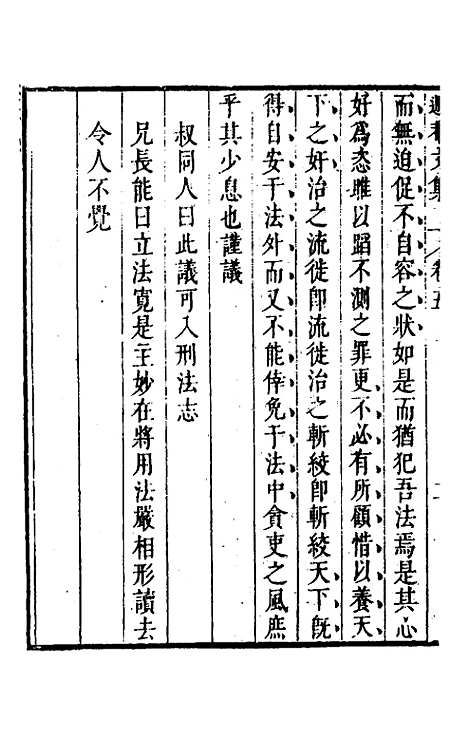 而無迫促不自容之狀如是而猶犯吾法焉是其心
好爲恣雎以蹈不測之罪更不必有所顧惜以養天
下之奸治之流徙卽流徙治之斬絞卽斬絞天下旣
得自安于法外而又不能倖免于法中貪吏之風庶
乎其少息也謹議
叔同人曰此議可入刑法志
兄長能曰立法寬是主妙在將用法嚴相形讀去
令人不覺